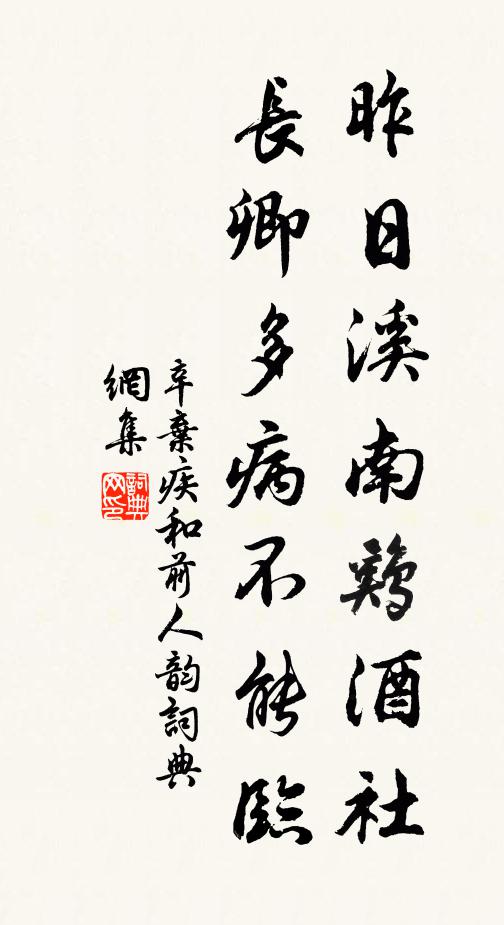 昨日溪南鷄酒社
長卿多病不能臨
辛棄疾和前人韵詞典
網集
詞典网印